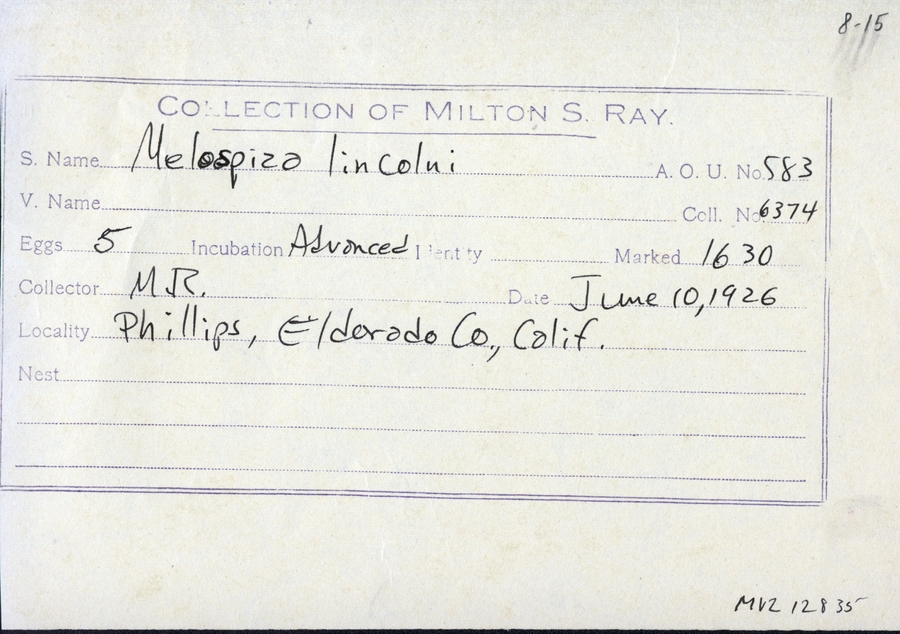 8-15
COLLECTION OF MILTON S. RAY.
S. Name Melospiza lincolni A. O. U. No. 583
V. Name Coll. No. 6374
Eggs 5 Incubation Advanced Identity Marked 1630
Collector M.R. Date June 10, 1926
Locality Phillips, Eldorado Co., Calif.
Nest
MVZ 12835